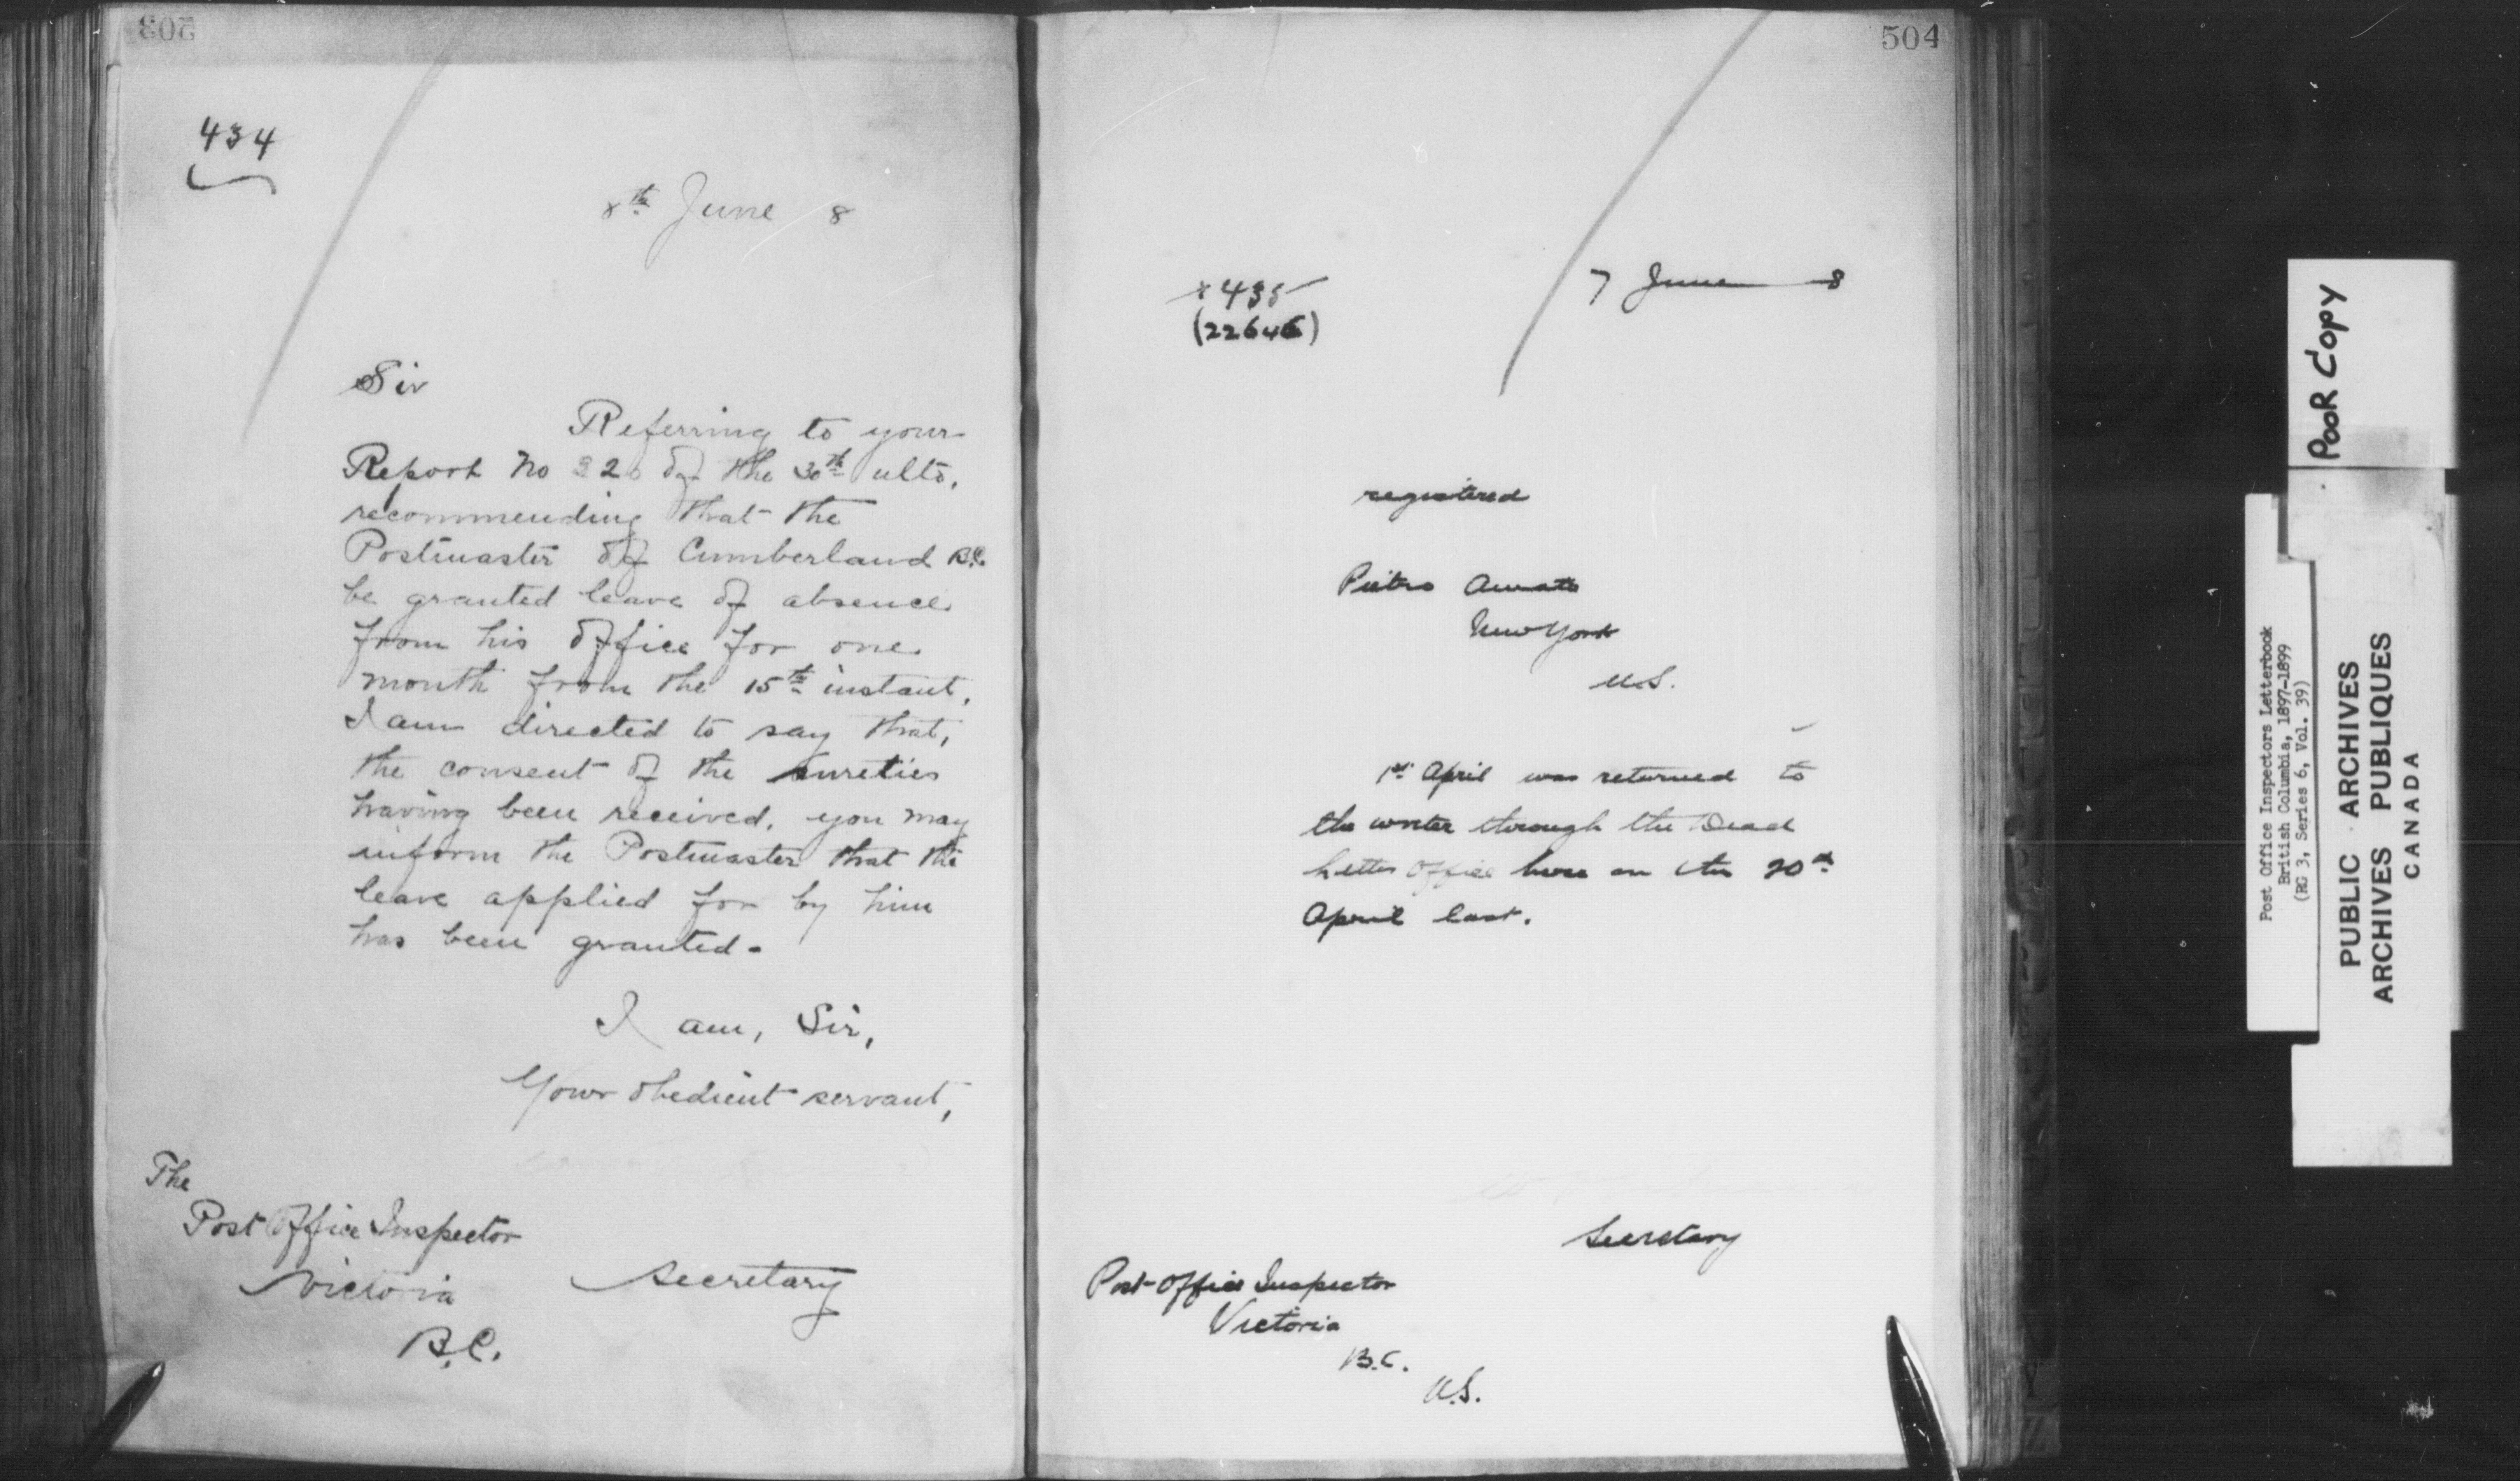 434
8th June 8
Sir
Referring to your
Report No 220 of the 30th ulto,
recommending that the
Postmaster of Cumberland B.C.
be granted leave of absence
from his office for one
month from the 15th instant,
I am directed to say that,
the consent of the sureties
having been received, you may
inform the Postmaster that the
leave applied for by him
has been granted.
I am, Sir,
Your obedient servant,
The
Post Office Inspector
Victoria
Secretary
B.C.
504
7 June 8
435
(22646)
registered
Pietro Amato
New York
U.S.
1st April was returned to
the writer through the Dead
Letter Office here on the 20th
April last.
Secretary
Post Office Inspector
Victoria
B.C.
U.S.
Poor Copy
Post Office Inspectors Letterbook
British Columbia, 1897-1899
(RG 3, Series 6, Vol. 39)
PUBLIC ARCHIVES
ARCHIVES PUBLIQUES
CANADA